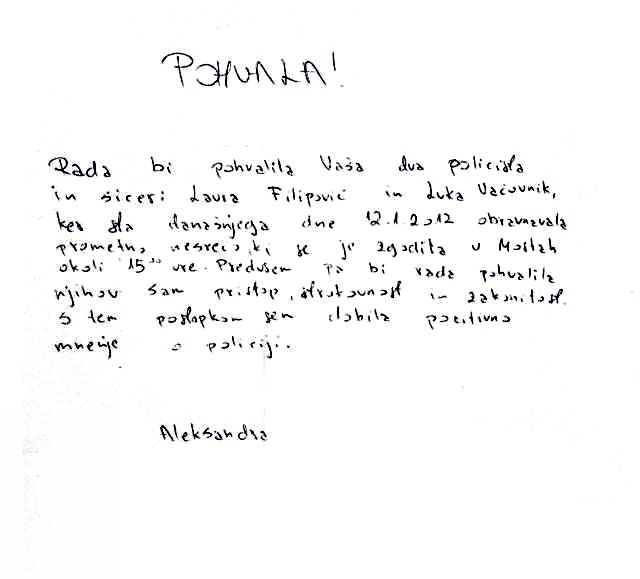 POHVALA!
Rada bi pohvalila Vaša dva policista
in sicer: Laura Filipović in Luka Vačovnik,
ker sta današnjega dne 12.1.2012 obravnavala
prometno nesrečo, ki se je zgodila v Mostah
okoli 15⁰⁰ ure. Predvsem pa bi rada pohvalila
njihov sam pristop, strokovnost in zakonitost.
S tem postopkom sem dobila pozitivno
mnenje o policiji.
Aleksandra